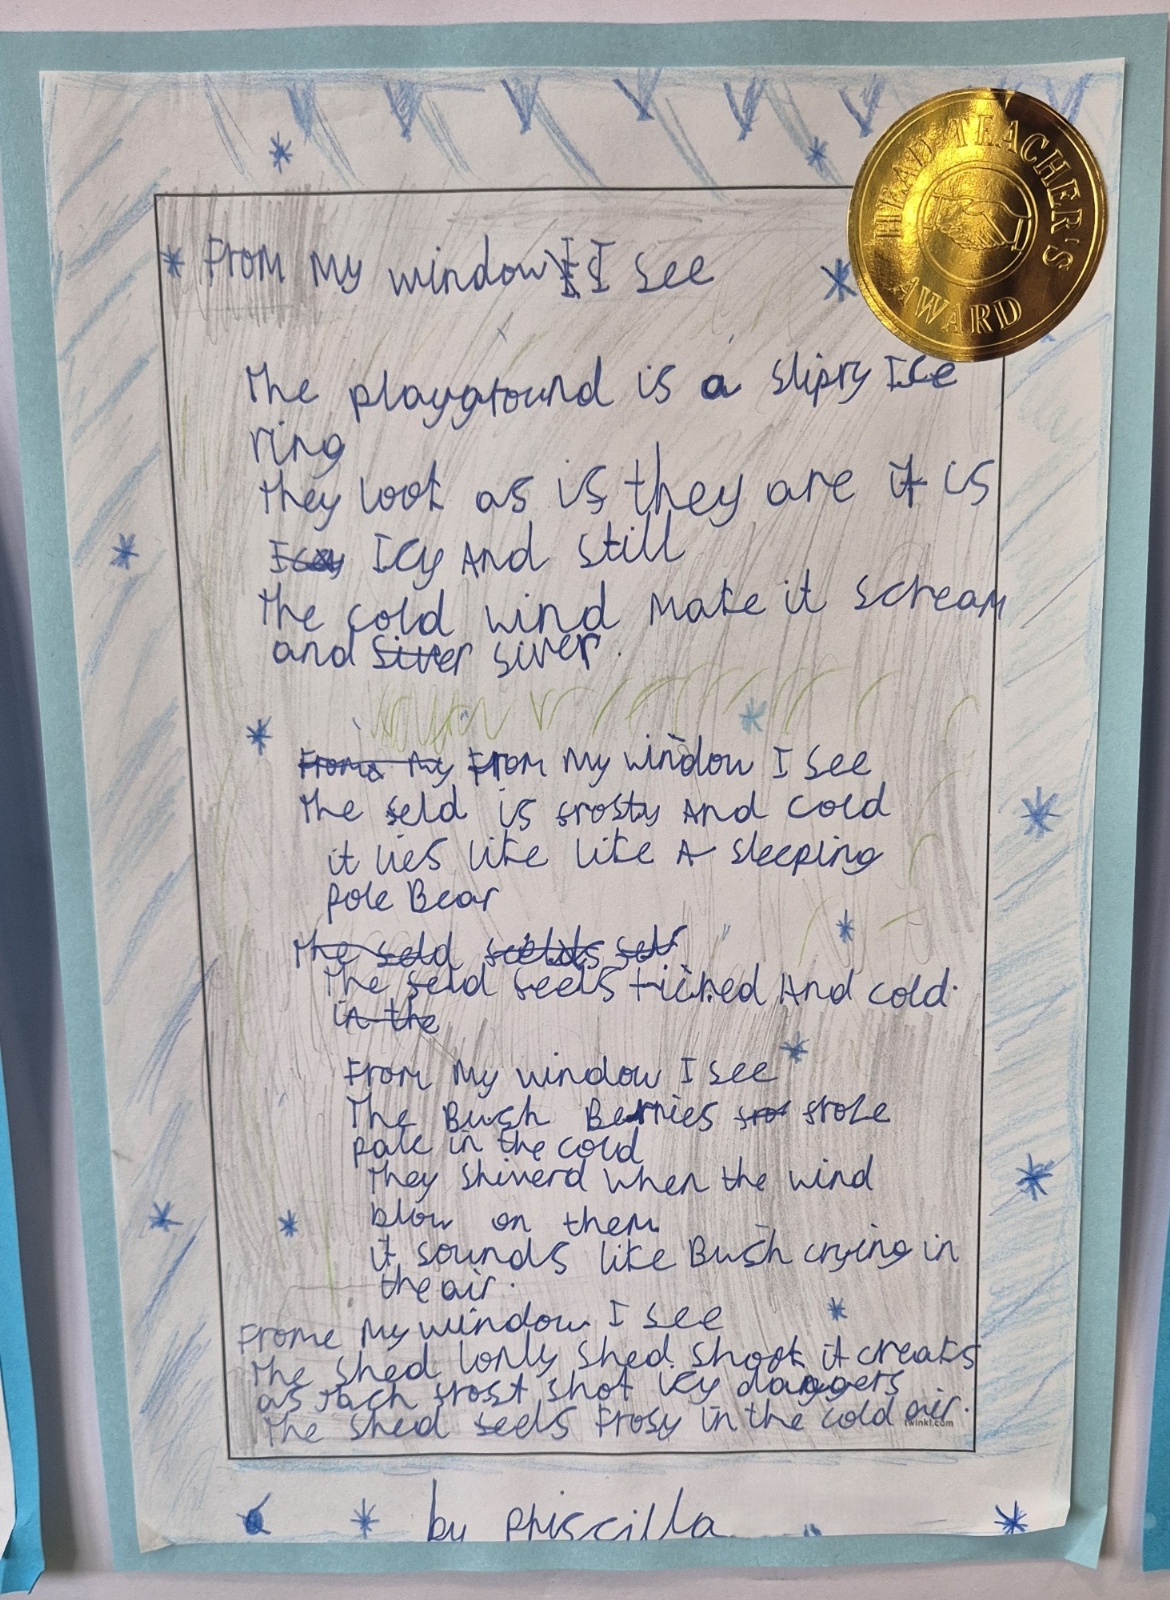 HEAD TEACHER'S AWARD
From My window I see
The playground is a slipry Ice
ring
they look as is they are it is
Icy And still
the cold wind Make it scream
and siver siver.
From My From My window I see
the feld is frosty And cold
it lies like like A sleeping
pole Bear
the feld
The feld feels ticked And cold.
in the
From My window I see
The Bush Berries fro froze
pale in the cold
They shiverd when the wind
blow on them
it sounds like Bush crying in
the air.
Frome My window I see
the shed lonly shed shook it creaks
as Jach frost shot icy daggers
The shed feels frosy in the cold air.
twinkl.com
by Phiscilla